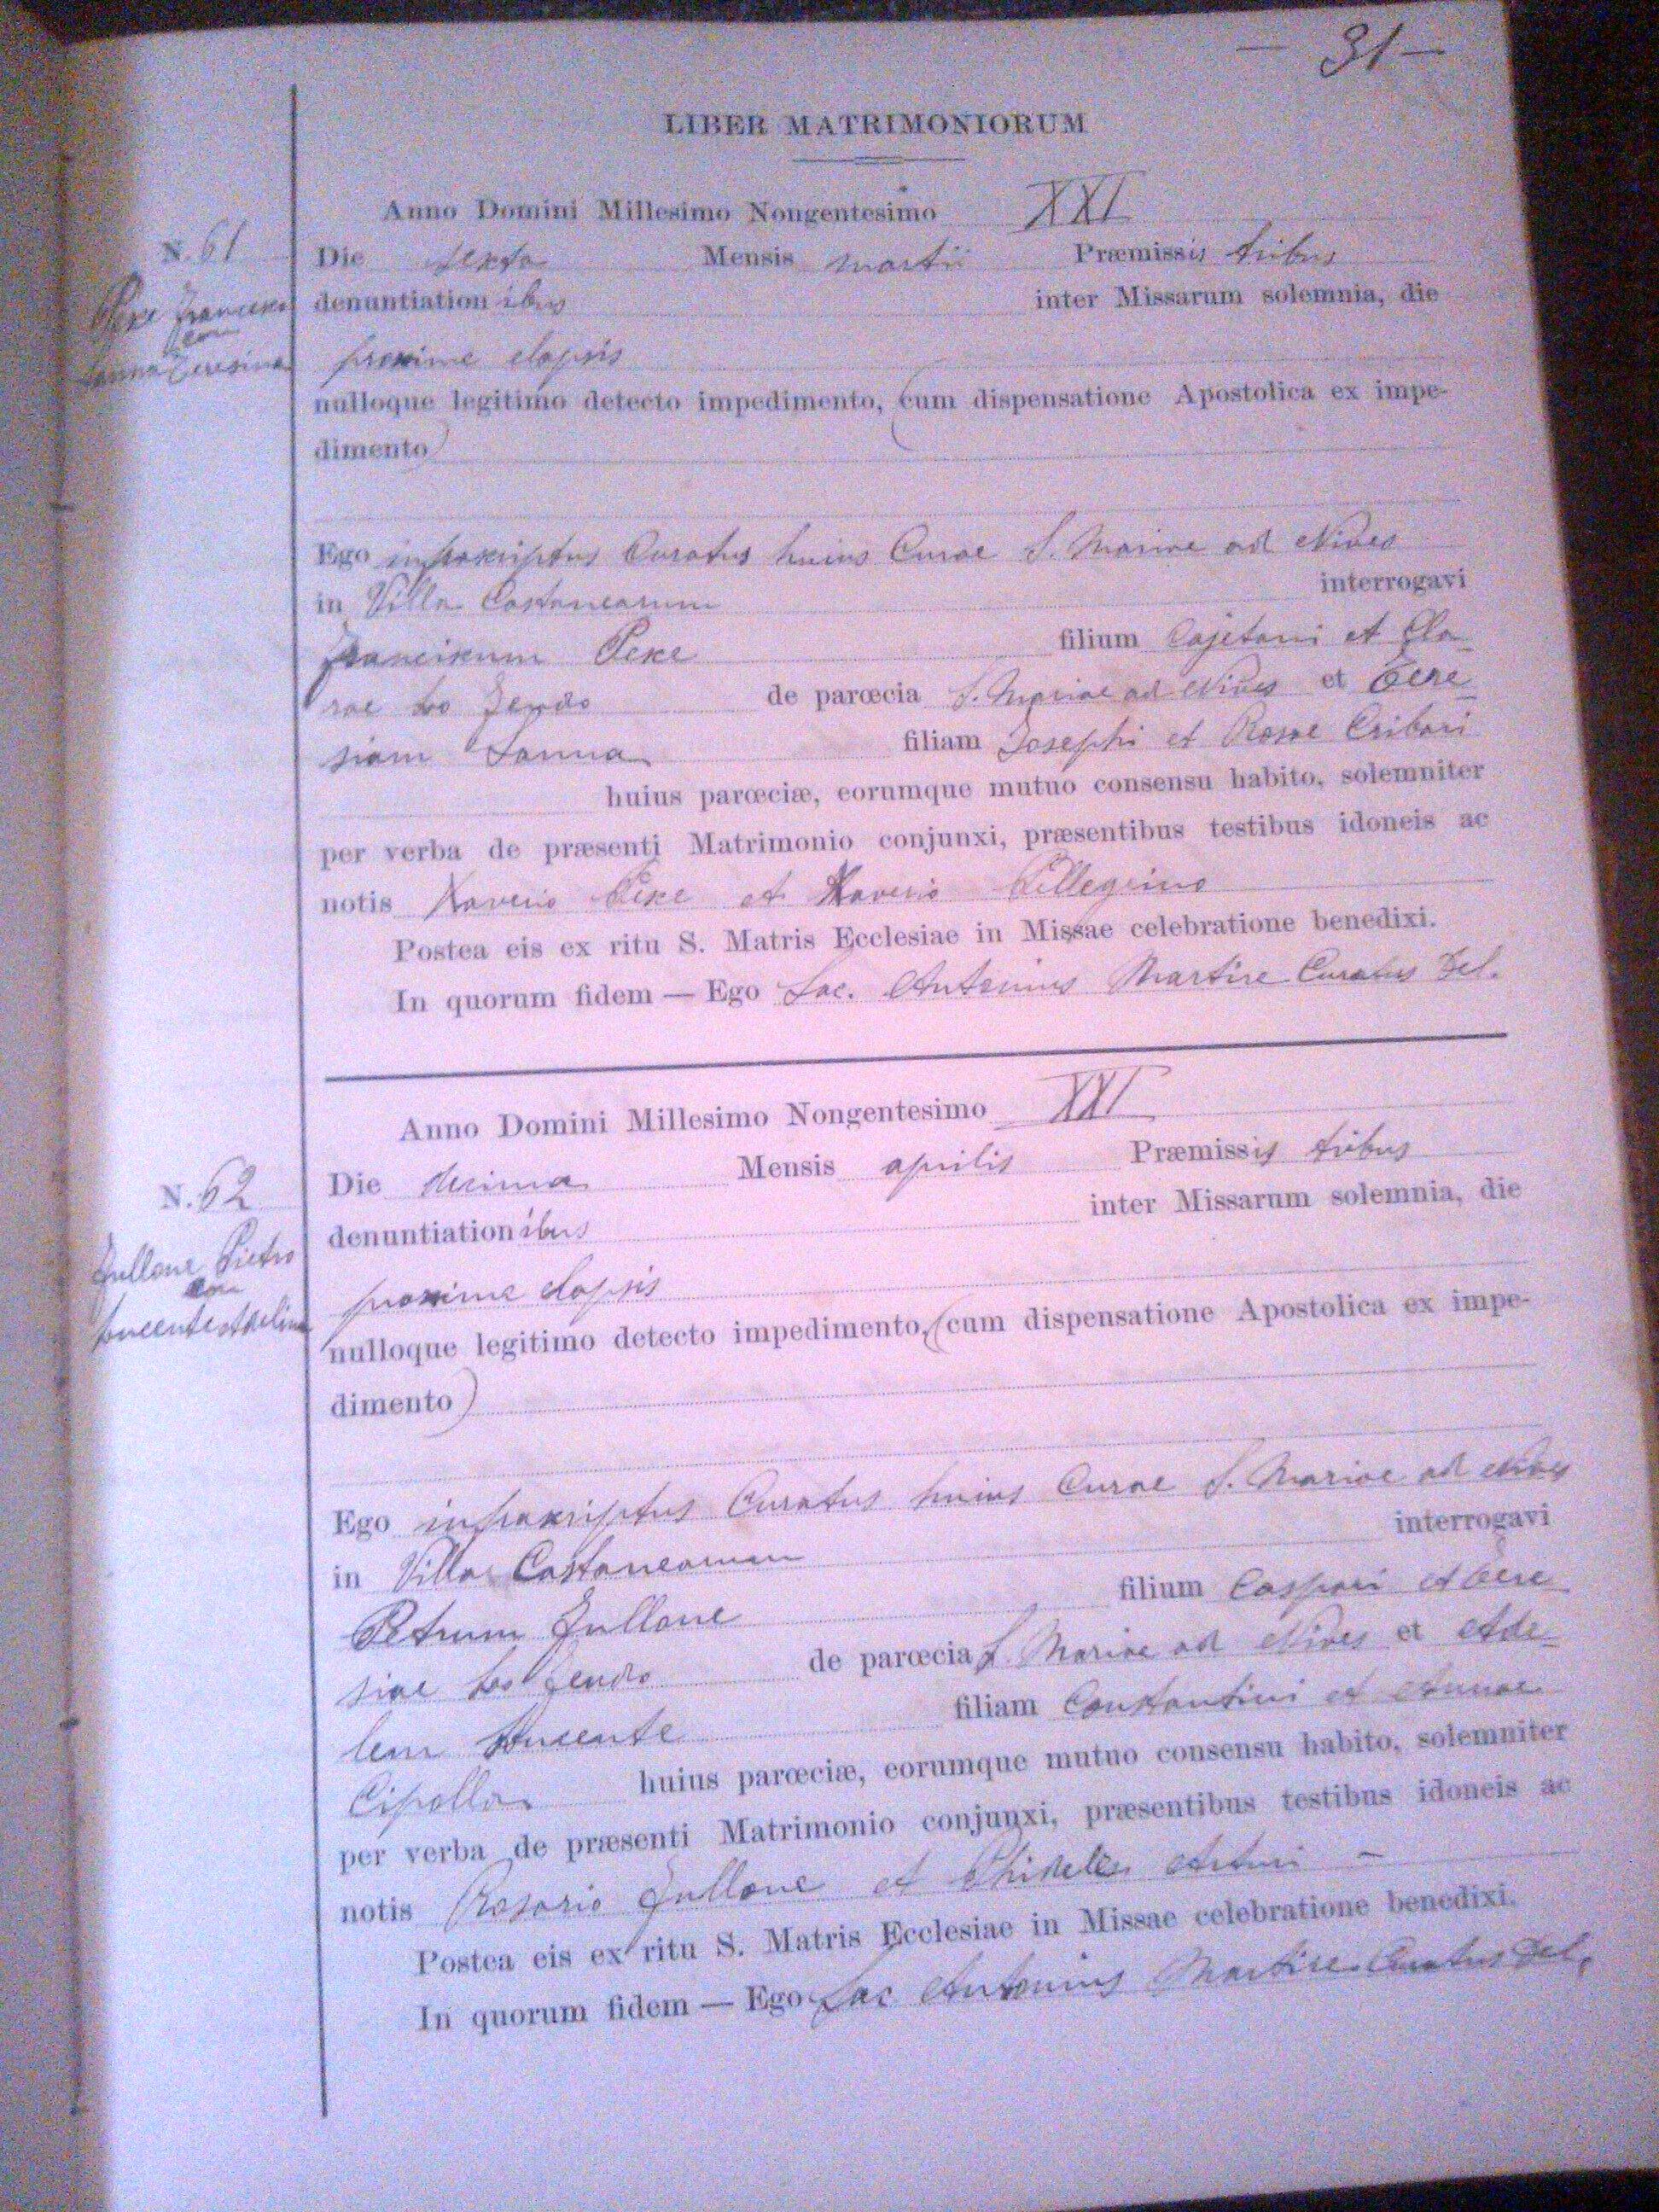 — 31 —
LIBER MATRIMONIORUM
Anno Domini Millesimo Nongentesimo XXI
N. 61
Die sexta Mensis martii Præmissis tribus
denuntiationibus inter Missarum solemnia, die
con
Teresina
proxime elapsis
nulloque legitimo detecto impedimento, (cum dispensatione Apostolica ex impe-
dimento)
Ego infrascriptus Curatus huius Curae S. Mariae ad Nives
in Villa Castanearum interrogavi
Franciscum filium Cajetani et Cla-
rae de parœcia S. Mariae ad Nives et Tere
siam filiam Josephi et Rosae Cribari
huius parœciæ, eorumque mutuo consensu habito, solemniter
per verba de præsenti Matrimonio conjunxi, præsentibus testibus idoneis ac
notis Xaverio et Xaverio Pellegrino
Postea eis ex ritu S. Matris Ecclesiae in Missae celebratione benedixi.
In quorum fidem — Ego Sac. Antonius Martire Curatus Del.
Anno Domini Millesimo Nongentesimo XXI
N. 62
Die decima Mensis aprilis Præmissis tribus
denuntiationibus inter Missarum solemnia, die
Fullone Pietro
con
proxime elapsis
nulloque legitimo detecto impedimento, (cum dispensatione Apostolica ex impe-
dimento)
Ego infrascriptus Curatus huius Curae S. Mariae ad Nives
in Villa Castanearum interrogavi
Petrum Fullone filium Caspari et Tere
siae de parœcia S. Mariae ad Nives et Ade
lem filiam Constantini et Annae
Cipolla huius parœciæ, eorumque mutuo consensu habito, solemniter
per verba de præsenti Matrimonio conjunxi, præsentibus testibus idoneis ac
notis Rosario Fullone et
Postea eis ex ritu S. Matris Ecclesiae in Missae celebratione benedixi.
In quorum fidem — Ego Sac Antonius Martire Curatus Del.